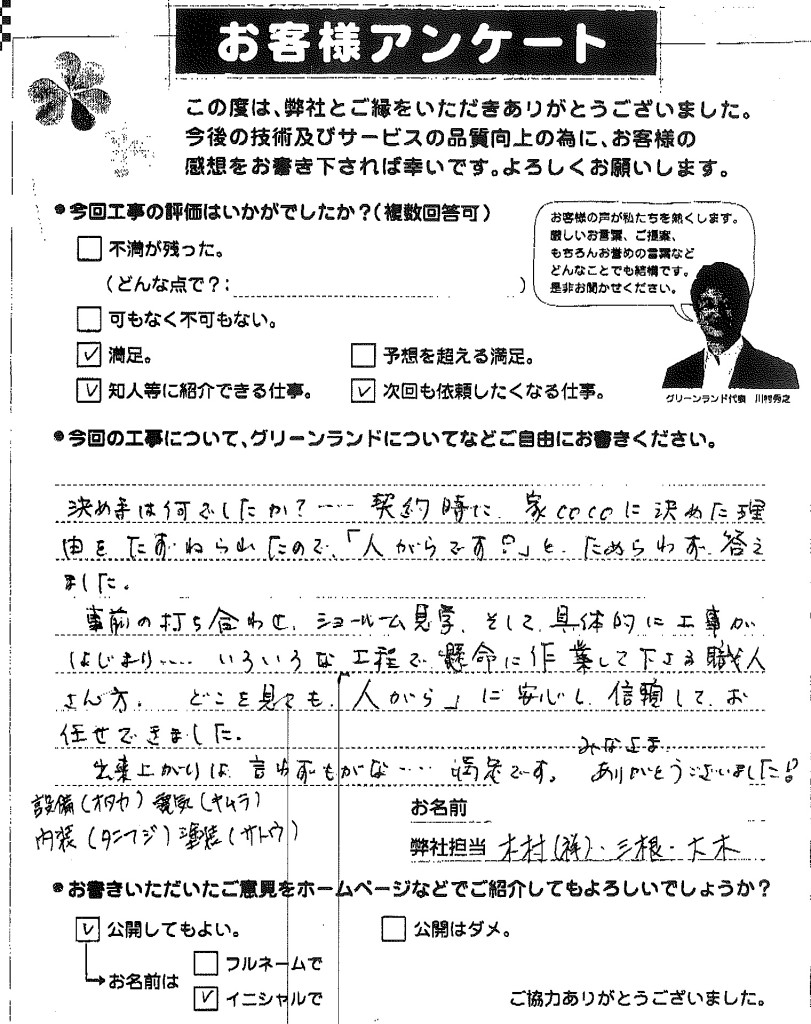 お客様アンケート
この度は、弊社とご縁をいただきありがとうございました。
今後の技術及びサービスの品質向上の為に、お客様の
感想をお書き下されば幸いです。よろしくお願いします。
●今回工事の評価はいかがでしたか?(複数回答可)
お客様の声が私たちを熱くします。
厳しいお言葉、ご提案、
もちろんお誉めの言葉など
どんなことでも結構です。
是非お聞かせください。
不満が残った。
(どんな点で?: )
可もなく不可もない。
満足。 予想を超える満足。
知人等に紹介できる仕事。 次回も依頼したくなる仕事。
グリーンランド代表 川村秀之
●今回の工事について、グリーンランドについてなどご自由にお書きください。
決め手は何でしたか?…… 契約時に、家cocoに決めた理
由をたずねられたので、「人がらです!」と、ためらわず、答え
ました。
事前の打ち合わせ、ショールーム見学、そして、具体的に工事が
はじまり…… いろいろな工程で、懸命に作業して下さる職人
さん方。 どこを見ても、「人がら」に安心し、信頼して、お
任せできました。
出来上がりは、言わずもがな…… 満足です。 みなさま ありがとうございました!
設備(オタカ) 電気(キムラ)
内装(タニフジ) 塗装(サトウ)
お名前
弊社担当 木村(祥)・三根・大木
●お書きいただいたご意見をホームページなどでご紹介してもよろしいでしょうか?
公開してもよい。 公開はダメ。
お名前は フルネームで
イニシャルで
ご協力ありがとうございました。